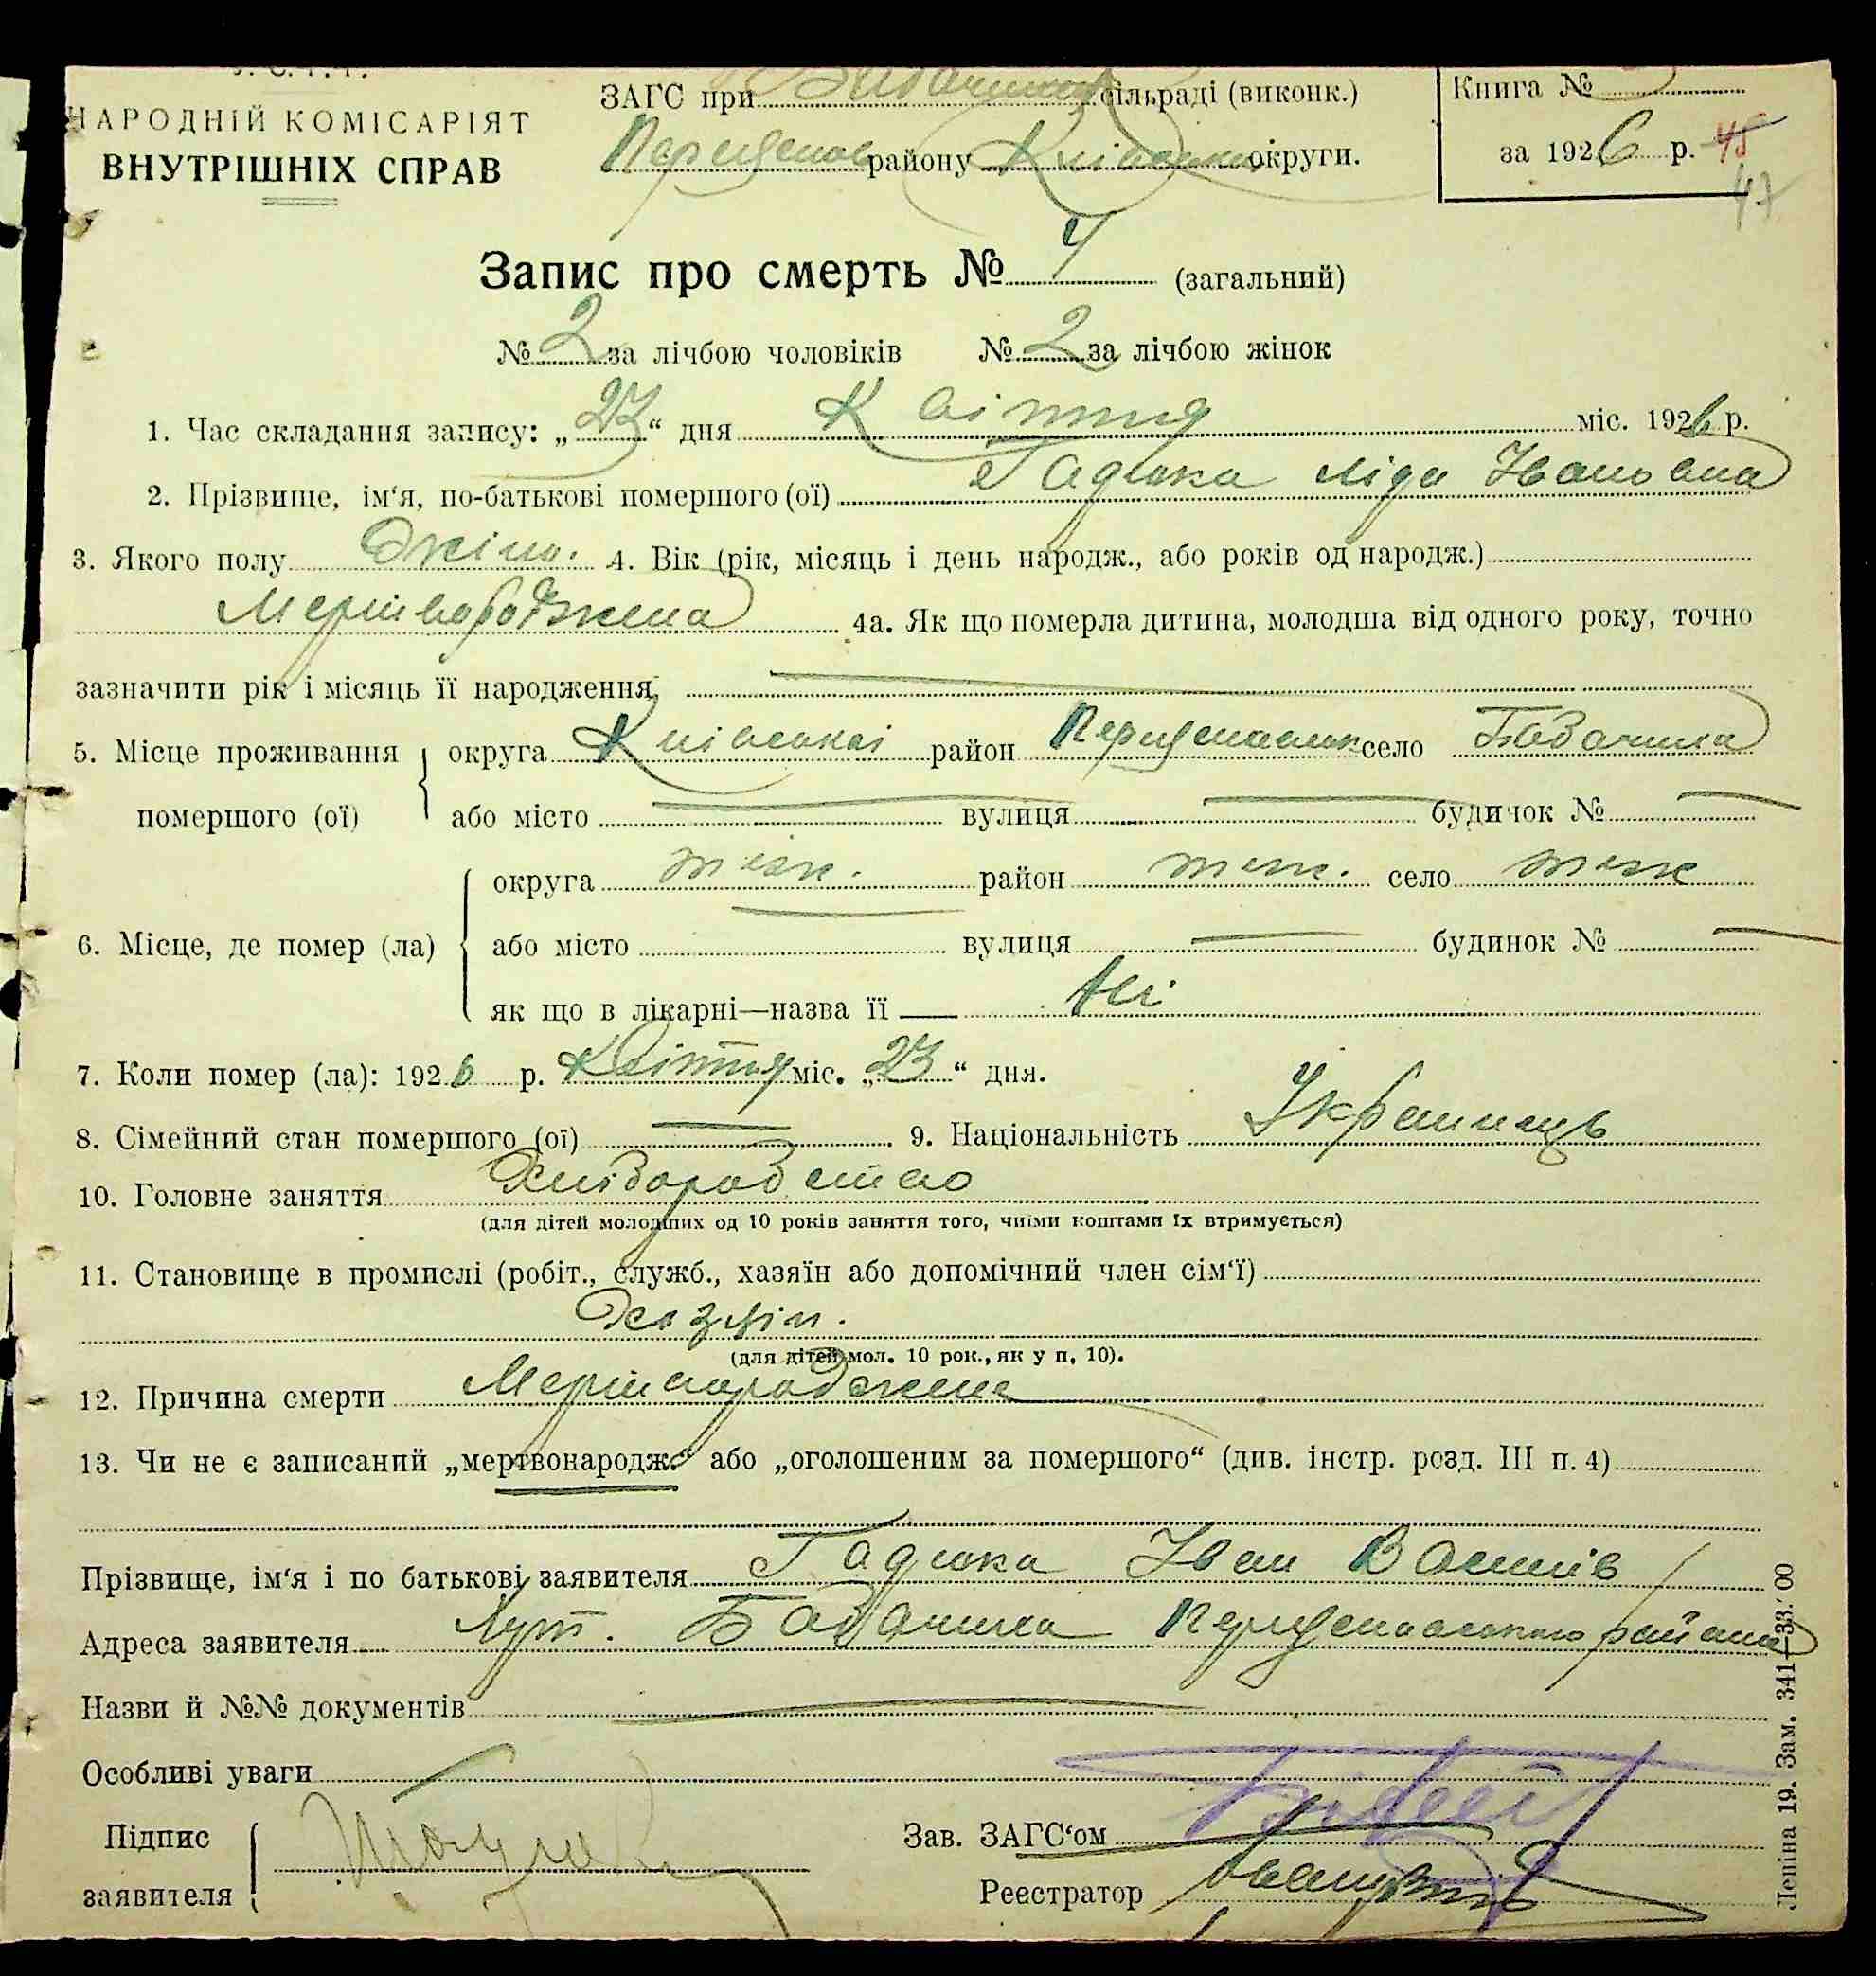 НАРОДНІЙ КОМІСАРІЯТ
ВНУТРІШНІХ СПРАВ
ЗАГС при сільраді (виконк.)
району округи.
Книга №
за 1926 р. 45
47
Запис про смерть № 4 (загальний)
№ 2 за лічбою чоловіків № 2 за лічбою жінок
1. Час складання запису: „23“ дня Квітня міс. 1926 р.
2. Прізвище, ім‘я, по-батькові помершого (ої) Гадюка Ліда Івановна
3. Якого полу Жіно. 4. Вік (рік, місяць і день народж., або років од народж.)
4а. Як що померла дитина, молодша від одного року, точно
зазначити рік і місяць її народження,
5. Місце проживання помершого (ої) округа Київської район село
або місто вулиця будичок №
6. Місце, де помер (ла) округа теж. район теж. село теж
або місто вулиця будинок №
як що в лікарні—назва її Ні
7. Коли помер (ла): 1926 р. Квітня міс. „23“ дня.
8. Сімейний стан помершого (ої) 9. Національність Українець
10. Головне заняття Хліборобство
(для дітей молодших од 10 років заняття того, чиїми коштами їх втримується)
11. Становище в промислі (робіт., служб., хазяїн або допомічний член сім‘ї)
Хазяїн.
(для дітей мол. 10 рок., як у п. 10).
12. Причина смерти Мертвонароджена
13. Чи не є записаний „мертвонародж.“ або „оголошеним за помершого“ (див. інстр. розд. III п. 4)
Прізвище, ім‘я і по батькові заявителя Гадюка Іван
Адреса заявителя Хут.
Назви й №№ документів
Особливі уваги
Підпис заявителя
Зав. ЗАГС‘ом
Реєстратор
Леніна 19. Зам. 341—33.